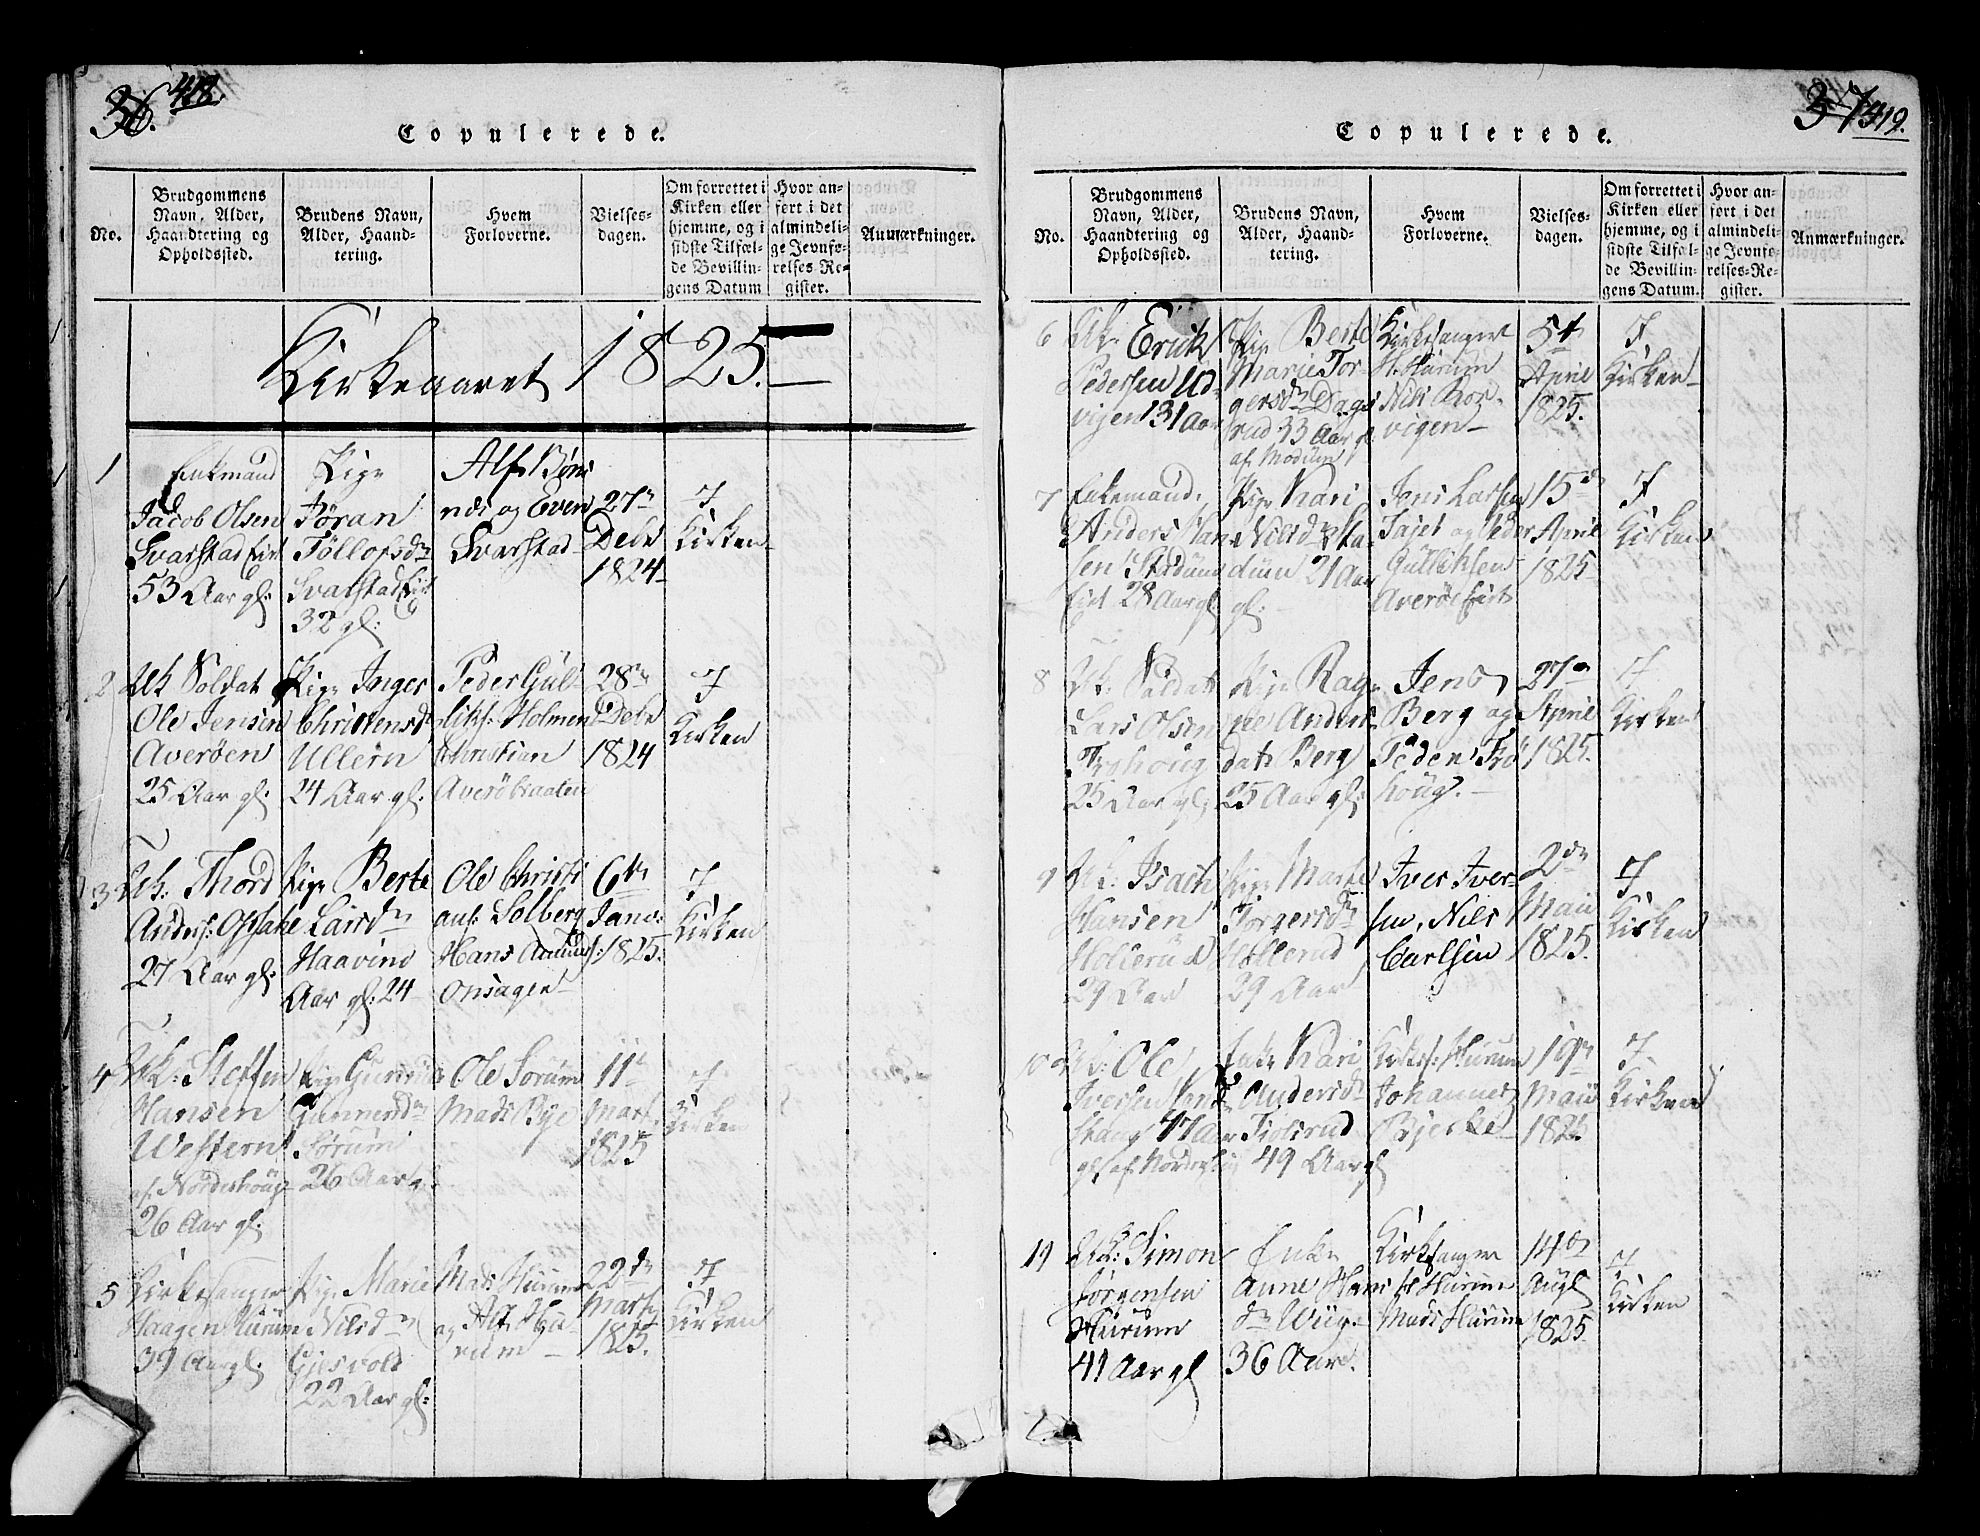 36. 418.
Copulerede.
No.
Brudgommens
Navn, Alder,
Haandtering og
Opholdssted.
Brudens Navn,
Alder, Haand-
tering.
Hvem
Forloverne.
Vielses-
dagen.
Om forrettet i
Kirken eller
hjemme, og i
sidste Tilfæl-
de Bevillin-
gens Datum
Hvor an-
ført i det
almindeli-
ge Jevnfø-
relses-Re-
gister.
Anmærkninger.
Kirkeaaret 1825.
1
Enkemand
Jacob Olsen
Svarstad
53 Aar gl:
Pige
Jøran
Tøllofsdr
Svarstad
32 gl:
Alf Bøni
næs og Even
Svarstad
27de
Debr
1824
I
Kirken
2
Uk Soldat
Ole Jensen
Averøen
25 Aar gl:
Pige Inger
Christensd
Ullern
24 Aar gl:
Peder Gul-
liks: Holmen
Christian
Averøbraaten
28de
Debr
1824
I
Kirken
3
Uk: Thord
Anders: Opsahl
27 Aar gl:
Pige Berte
Larsdr
Haavind
Aar gl: 24
Ole Christi
ans: Solberg
Hans
Onsagen
6te
Janv:
1825.
I
Kirken
4
Uk: Steffen
Hansen
Western
af Norderhoug
26 Aar gl:
Pige Gunnild
Gunnersdr
Sørum
26 Aar g.
Ole Sørum
Mads Bye
11te
Marts
1825
I
Kirken
5
Kirkesanger
Haagen Hurum
39 Aar gl.
Pige Marie
Nilsdr
Gjesvold
22 Aar gl:
Mads Hurum
og Alf Hu-
rum
22de
Marts
1825.
I
Kirken
37 419.
Copulerede.
No.
Brudgommens
Navn, Alder,
Haandtering og
Opholdssted.
Brudens Navn,
Alder, Haand-
tering.
Hvem
Forloverne.
Vielses-
dagen.
Om forrettet i
Kirken eller
hjemme, og i
sidste Tilfæl-
de Bevillin-
gens Datum.
Hvor an-
ført i det
almindeli-
ge Jevnfø-
relses-Re-
gister.
Anmærkninger.
6
Uk. Erick
Pedersen Ud-
vigen 31 Aar
Pige Berte
Marie Tor-
gersdr Dags
rud 33 Aar gl.
af Modum
Kirkesanger
H. Hurum
Nils Kor-
vigen
5te
April
1825.
I
Kirken
7
Enkemand
Anders Han
sen
28 Aar gl
Pige Kari
Nilsdr Sta
dum 21 Aar
gl:
Jens Larsen
Tajet og Peder
Gulliksen
Averøe
15de
April
1825
I
Kirken
8
Uk. Soldat
Lars Olsen
Frøhoug
25 Aar gl:
Pige Rag-
nel Anders
datr Berg
25 Aar gl:
Jens
Berg og
Peder Frø
houg.
27de
April
1825.
I
Kirken
9
Uk: Isach
Hansen
Hollerud
29 Aar
Pige Marte
Torgersdr
Hollerud
29 Aar
Iver Iver-
sen, Nils
Carlsen
2den
Maii
1825.
I
Kirken
10
Uk: Ole
Iversen
47 Aar
gl: af Norderhoug
Enke Kari
Andersdr
Fiolsrud
49 Aar gl
Kirkes: Hurum
Johannes
Bjerke
19de
Maii
1825
I
Kirken
11
Uk: Simon
Jørgensen
Hurum
41 Aar gl
Enke
Anne Hans
dr Wiig
36 Aar.
Kirksanger
H Hurum
Mads Hurum
14de
Augt
1825
I
Kirken